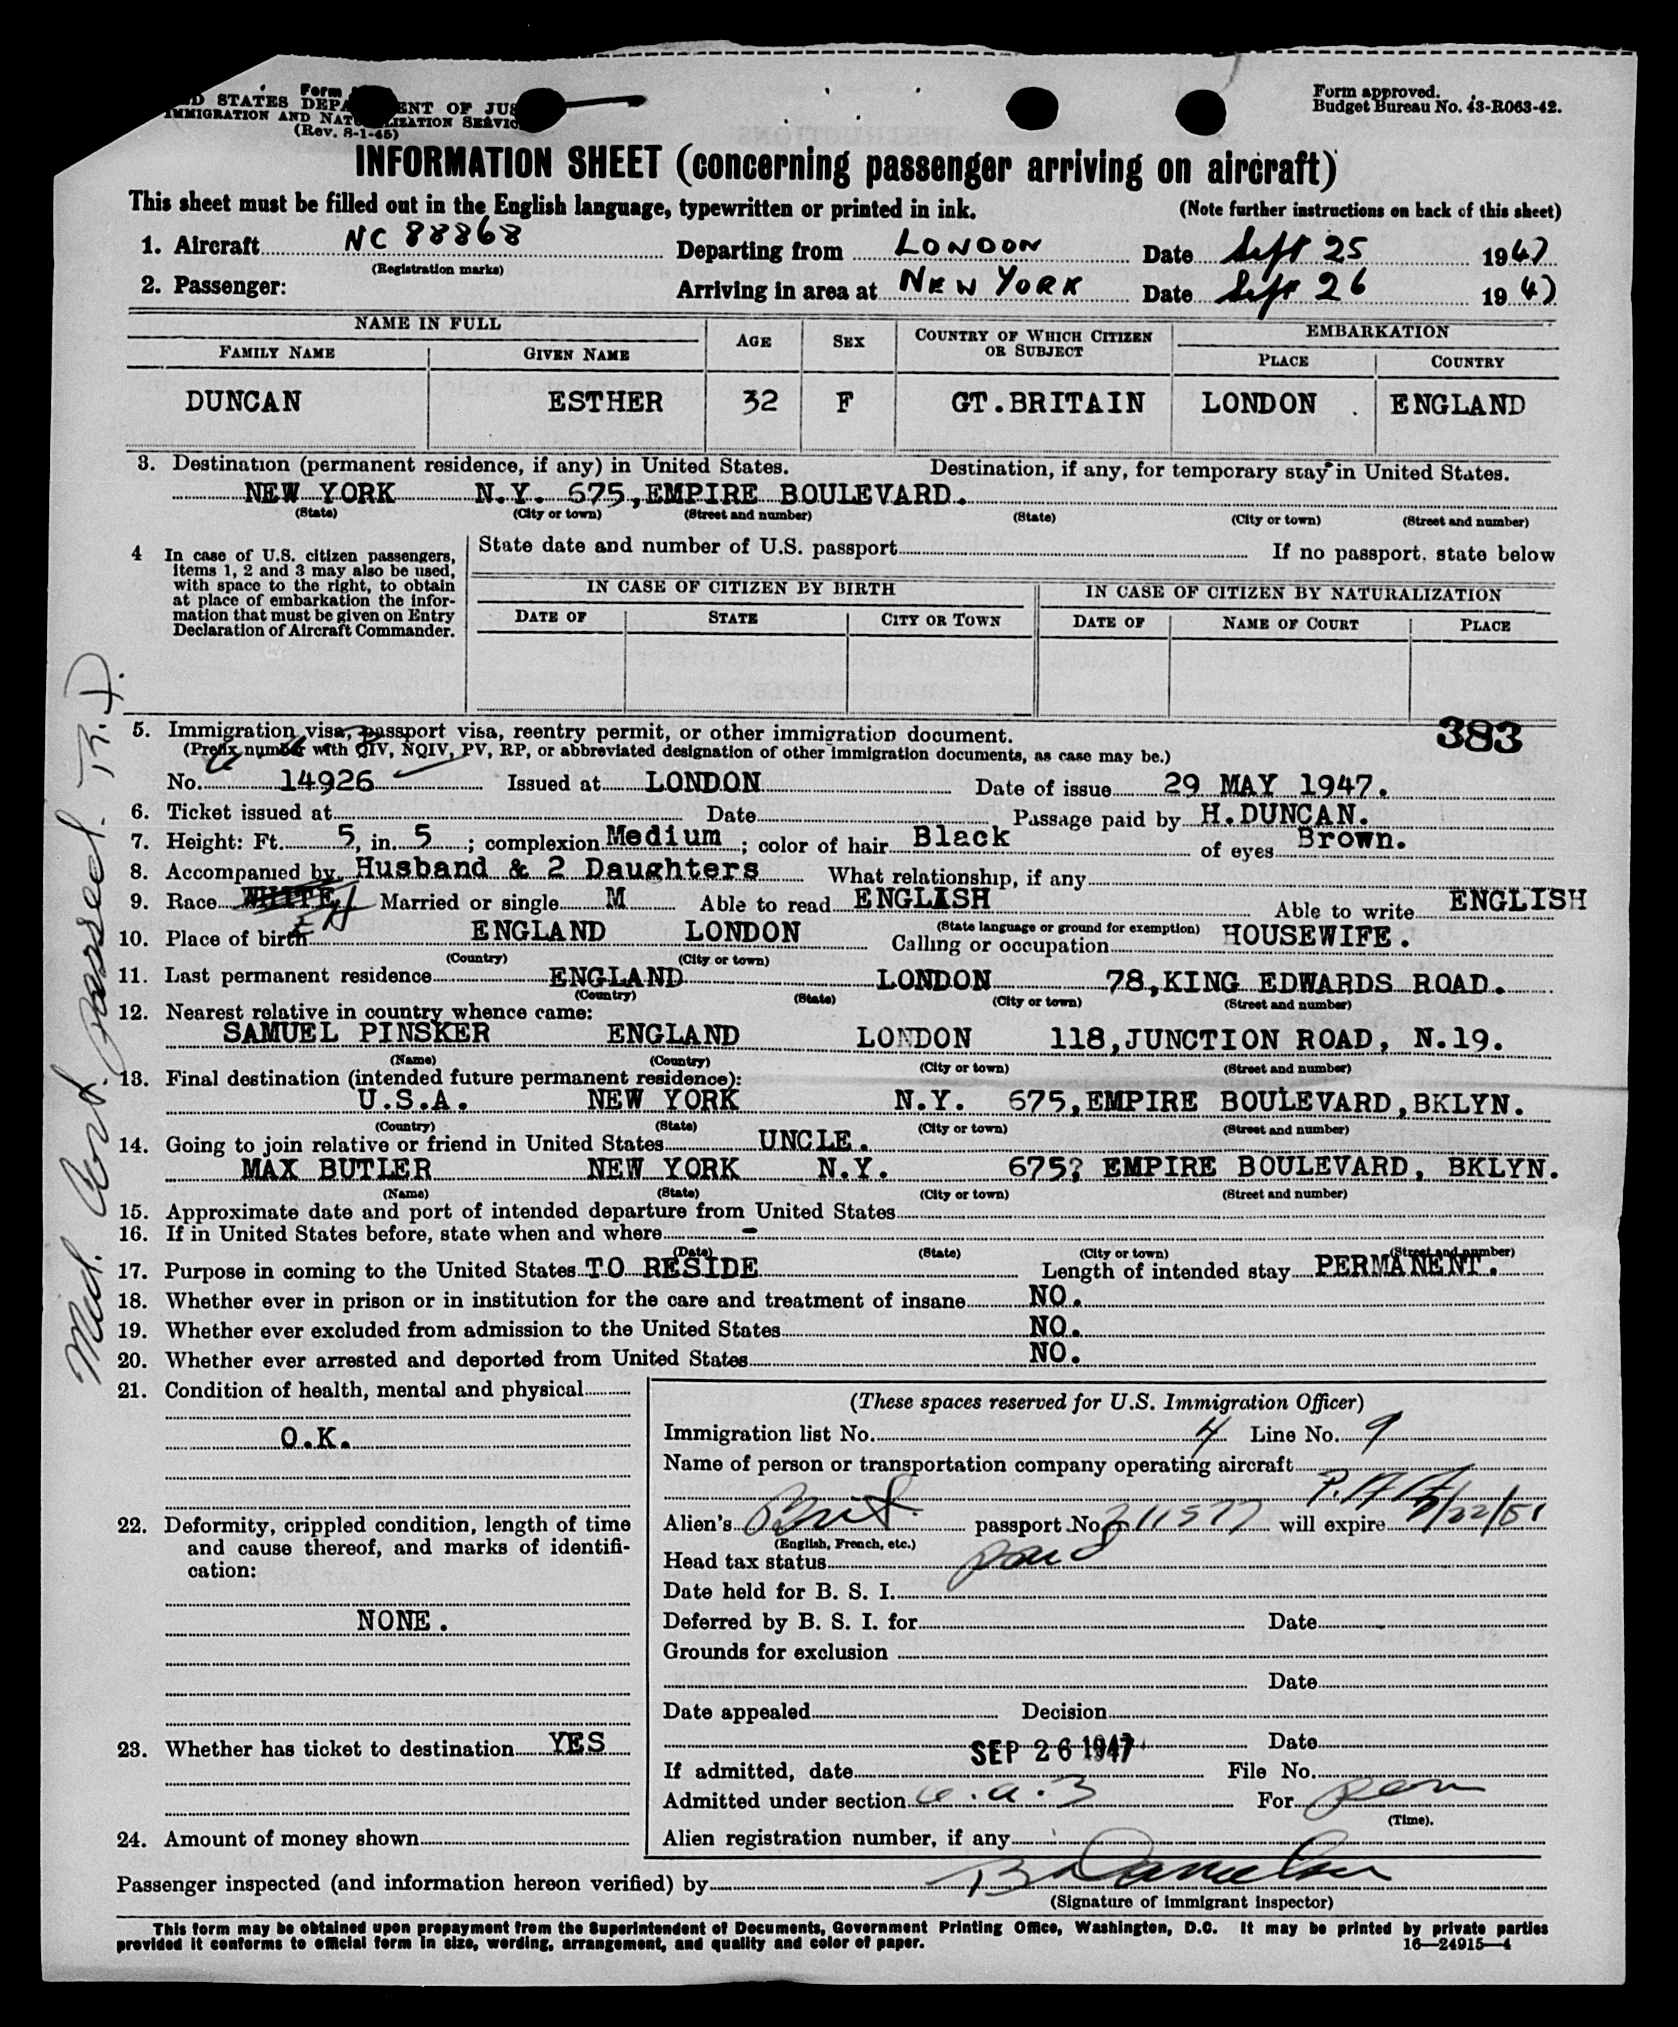 Form
D STATES DEPA ENT OF JUS
IMMIGRATION AND NAT LIZATION SERVIC
(Rev. 8-1-45)
Form approved.
Budget Bureau No. 43-R063-42.
INFORMATION SHEET (concerning passenger arriving on aircraft)
This sheet must be filled out in the English language, typewritten or printed in ink.
(Note further instructions on back of this sheet)
1. Aircraft NC 88868 Departing from LONDON Date Sept 25 1947
(Registration marks)
2. Passenger: Arriving in area at NEW YORK Date Sept 26 1947
NAME IN FULL AGE SEX COUNTRY OF WHICH CITIZEN OR SUBJECT EMBARKATION
FAMILY NAME GIVEN NAME PLACE COUNTRY
DUNCAN ESTHER 32 F GT.BRITAIN LONDON . ENGLAND
3. Destination (permanent residence, if any) in United States. Destination, if any, for temporary stay in United States.
NEW YORK N.Y. 675,EMPIRE BOULEVARD.
(State) (City or town) (Street and number) (State) (City or town) (Street and number)
4 In case of U.S. citizen passengers,
items 1, 2 and 3 may also be used,
with space to the right, to obtain
at place of embarkation the infor-
mation that must be given on Entry
Declaration of Aircraft Commander.
State date and number of U.S. passport If no passport, state below
IN CASE OF CITIZEN BY BIRTH IN CASE OF CITIZEN BY NATURALIZATION
DATE OF STATE CITY OR TOWN DATE OF NAME OF COURT PLACE
5. Immigration visa, passport visa, reentry permit, or other immigration document. 383
(Prefix number with QIV, NQIV, PV, RP, or abbreviated designation of other immigration documents, as case may be.)
No. 14926 Issued at LONDON Date of issue 29 MAY 1947.
6. Ticket issued at Date Passage paid by H.DUNCAN.
7. Height: Ft. 5, in. 5 ; complexion Medium ; color of hair Black of eyes Brown.
8. Accompanied by Husband & 2 Daughters What relationship, if any
9. Race WHITE Married or single M Able to read ENGLISH Able to write ENGLISH
(State language or ground for exemption)
10. Place of birth ENGLAND LONDON Calling or occupation HOUSEWIFE.
(Country) (City or town)
11. Last permanent residence ENGLAND LONDON 78,KING EDWARDS ROAD.
(Country) (State) (City or town) (Street and number)
12. Nearest relative in country whence came:
SAMUEL PINSKER ENGLAND LONDON 118,JUNCTION ROAD, N.19.
(Name) (Country) (City or town) (Street and number)
13. Final destination (intended future permanent residence):
U.S.A. NEW YORK N.Y. 675,EMPIRE BOULEVARD,BKLYN.
(Country) (State) (City or town) (Street and number)
14. Going to join relative or friend in United States UNCLE.
MAX BUTLER NEW YORK N.Y. 675? EMPIRE BOULEVARD, BKLYN.
(Name) (State) (City or town) (Street and number)
15. Approximate date and port of intended departure from United States
16. If in United States before, state when and where -
(Date) (State) (City or town) (Street and number)
17. Purpose in coming to the United States TO RESIDE Length of intended stay PERMANENT.
18. Whether ever in prison or in institution for the care and treatment of insane NO.
19. Whether ever excluded from admission to the United States NO.
20. Whether ever arrested and deported from United States NO.
21. Condition of health, mental and physical
O.K.
22. Deformity, crippled condition, length of time
and cause thereof, and marks of identifi-
cation:
NONE.
23. Whether has ticket to destination YES
24. Amount of money shown
(These spaces reserved for U.S. Immigration Officer)
Immigration list No. 4 Line No. 9
Name of person or transportation company operating aircraft
P.A.A.
Alien's Brit. passport No. 211577 will expire 5/22/51
(English, French, etc.)
Head tax status paid
Date held for B. S. I.
Deferred by B. S. I. for Date
Grounds for exclusion
Date
Date appealed Decision
Date
If admitted, date SEP 26 1947 File No.
Admitted under section 6.a.3 For Perm
(Time).
Alien registration number, if any
Passenger inspected (and information hereon verified) by
(Signature of immigrant inspector)
This form may be obtained upon prepayment from the Superintendent of Documents, Government Printing Office, Washington, D.C. It may be printed by private parties
provided it conforms to official form in size, wording, arrangement, and quality and color of paper.
16—24915—4
Med. Cert. passed.